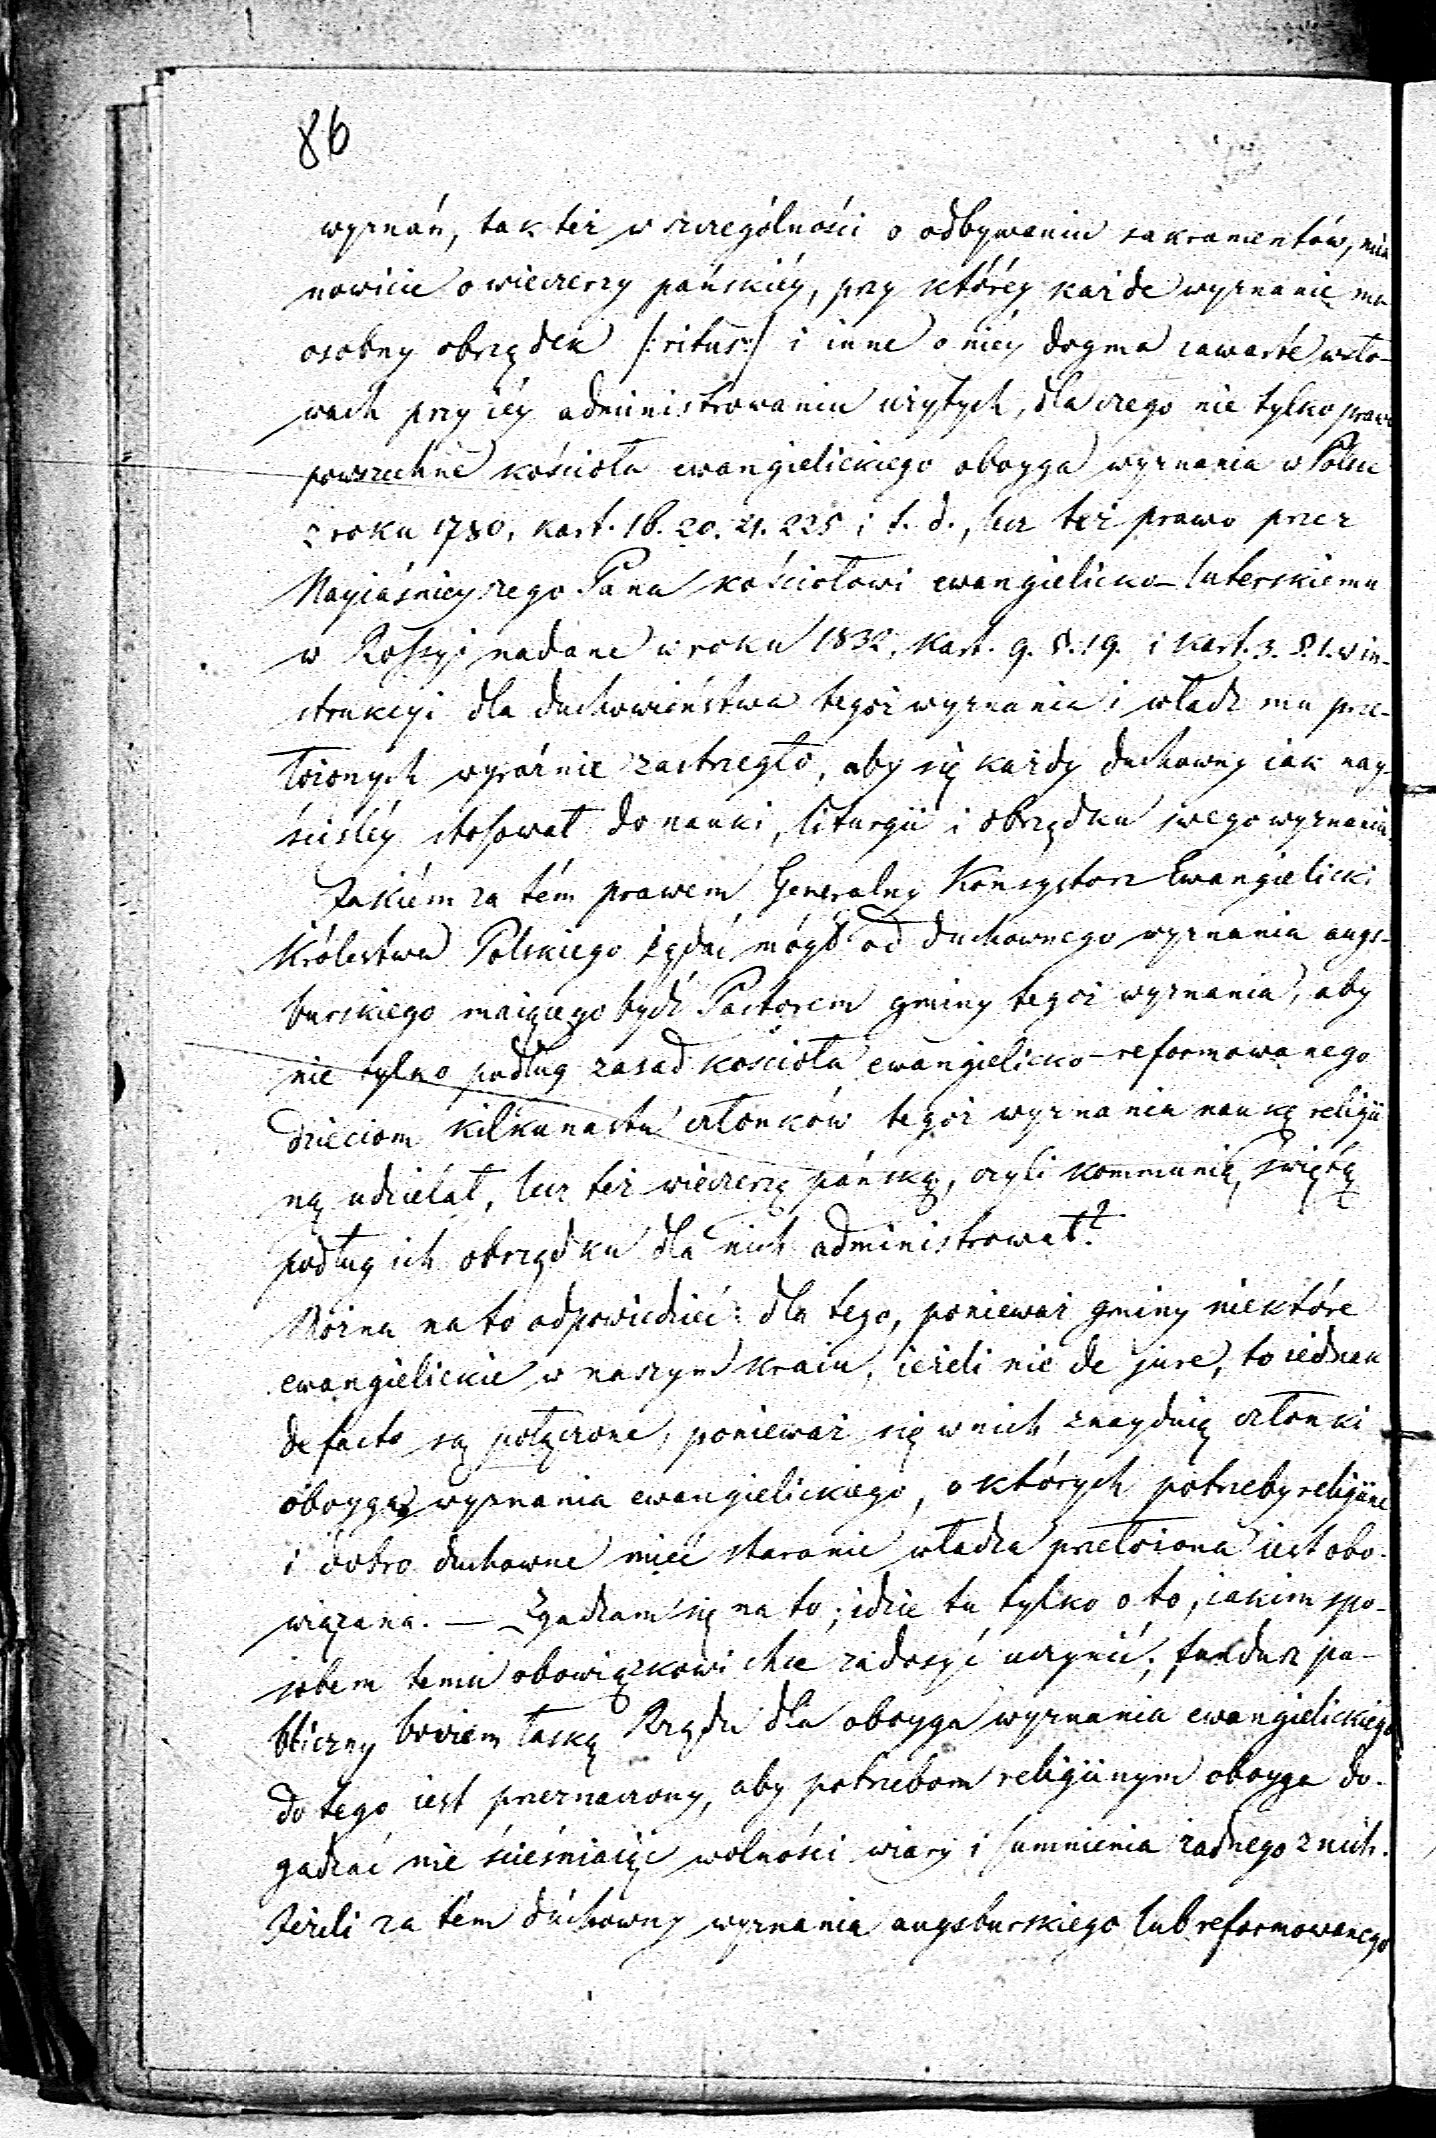 86
wyznań, tak też w szczególności o odbywaniu sakramentów, mia
nowicie o wieczerzy pańskiéy, przy któréy każde wyznanie ma
osobny obrządek /:ritus:/ i inne o niéy dogma zawarté w sło-
wach przy iéy administrowaniu użytych, dla czego nie tylko prawo
powszechne kościoła ewangielickiego oboyga wyznania w Polsce
z roku 1780, kart. 18. 20. 21. 225 i t. d., lecz też prawo przez
Nayiaśnieyszego Pana kościołowi ewangielicko-luterskiemu
w Rossyi nadane w roku 1832, kart. 9. §. 19. i kart. 3. §. 1. w in-
strukcyi dla duchowieństwa tegoż wyznania i władz mu prze-
łożonych wyraźnie zastrzegło, aby się każdy duchowny iak nay-
ściśléy stosował do nauki, liturgii i obrządku swego wyznania.
Jakiém za tém prawem Generalny Konsystorz Ewangielicki
Królestwa Polskiego żądać mógł od duchownego wyznania augs-
burskiego maiącego bydź Pastorem gminy tegoż wyznania, aby
nie tylko podług zasad kościoła ewangielicko-reformowanego
dzieciom kilkunastu członków tegoż wyznania naukę religii
ną udzielał, lecz też wieczerzę pańską, czyli kommunią świętą
podług ich obrządku dla nich administrował?
Można na to odpowiedzieć: dla tego, ponieważ gminy niektóre
ewangielickie w naszym kraiu, ieżeli nie de jure, to iednak
de facto są połączone, ponieważ się w nich znayduią członki
oboyga wyznania ewangielickiego, o których potrzeby religiine
i dobro duchowne mieć staranie władza przełożona iest obo-
wiązana. — Zgadzam się na to; idzie tu tylko o to, iakim spo-
sobem temu obowiązkowi chce zadosyć uczynić; fundusz pu-
bliczny bowiem łaską Rządu dla oboyga wyznania ewangielickiego
do tego iest przeznaczony, aby potrzebom religiinym oboyga do-
gadzać nie ścieśniaiąc wolności wiary i sumnienia żadnego z nich.
Jeżeli za tém duchowny wyznania augsburskiego lub reformowanego